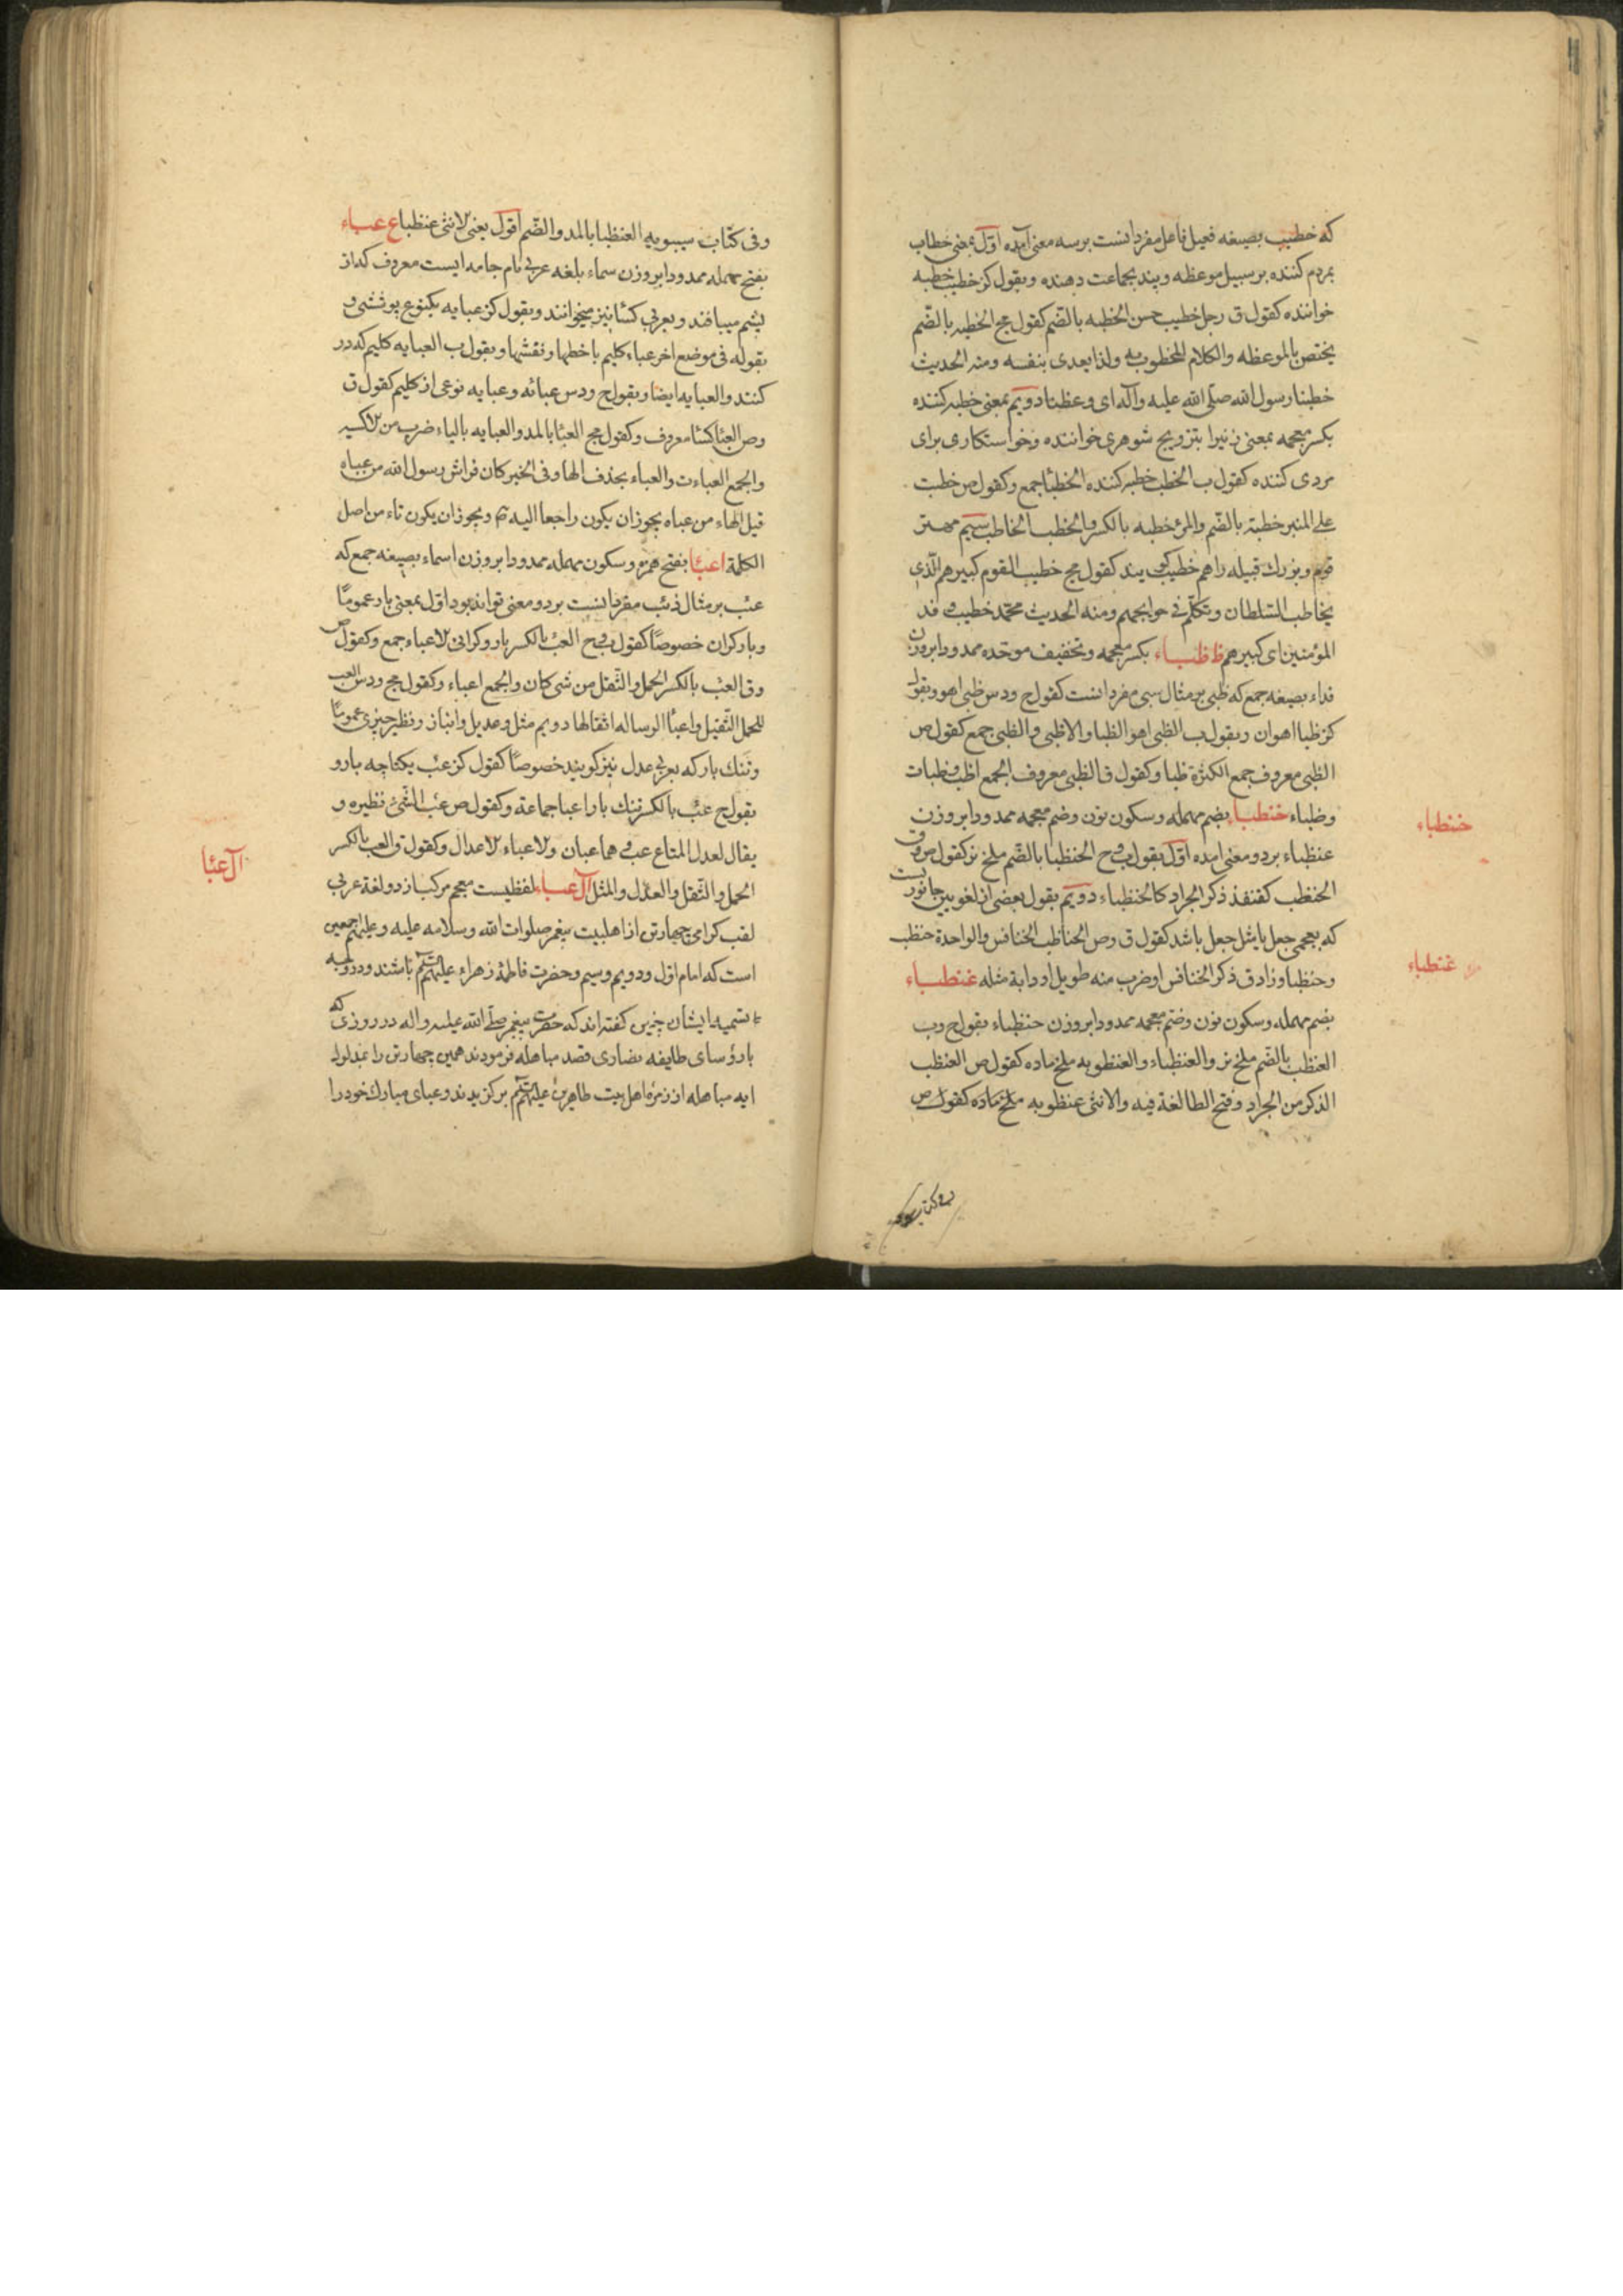 که خطیب بصیغه فعیل فاعل مفرد انست برسه معنی آمده اوّل بمعنی خطاب
بمردم کننده بر سبیل موعظه و پند بجماعت دهنده وبقول کز خطیب خطبه
خواننده کقول ق رجل خطیب حسن الخطبه بالضّم کقول مج الخطبه بالضّم
یختص بالموعظه والکلام المخطوب به ولذا یعدی بنفسه ومنه الحدیث
خطبنا رسول الله صلّی الله علیه وآله ای وعظنا دویم بمعنی خطبه کننده
بکسر معجمه بمعنی زنیرا بتزویج شوهری خواننده وخواستکاری برای
مردی کننده کقول ب الخطب خطبه کننده الخطبا جمع وکقول ص خطبت
علی المنبر خطبته بالضّم والمرء خطبه بالکسر والخطب الخاطب سیم مهتر
قوم وبزرک قبیله راهم خطیب کویند کقول مج خطیب القوم کبیرهم الّذی
یخاطب السّلطان ویتکلّم فی حوایجهم ومنه الحدیث محمّد خطیب وفد
المؤمنین ای کبیرهم ظ ظبـاء بکسر معجمه وتخفیف موحّده ممدودا بروزن
فداء بصیغه جمع که ظبی بر مثال سبی مفرد انست کقول ح ودس ظبی اهو وبقول
کز ظبا اهوان وبقول ب الظبی اهو الظبا والاظبی والظبی جمع کقول ص
الظبی معروف جمع الکثرة ظبا وکقول ق الظبی معروف الجمع اظب وظبیات
وظباء خنظباء بضم مهمله وسکون نون وضم معجمه ممدودا بروزن
عنظباء بر دو معنی امده اوّل بقول ب وح الحنظبا بالضّم ملخ نر کقول ص وق
الحنظب کقنفذ ذکر الجراد کالحنظباء دویم بقول بعضی از لغویین جانوریست
که بعجمی جعل یا مثل جعل باشد کقول ق وص الحناظب الخنافس والواحدة حنظب
وحنظبا وزاد ق ذکر الخنافس او ضرب منه طویل او دابة مثله عنظبـاء
بضم مهمله وسکون نون وضمّ معجمه ممدودا بروزن حنظباء بقول ح وب
العنظب بالضّم ملخ نر والعنظباء والعنظوبه ملخ ماده کقول ص العنظب
الذکر من الجراد وفتح الظا لغة فیه والانثی عنظوبه ملخ ماده کقول ص
خنظباء
عنظباء
وفی کتاب سیبویه العنظبا بالمد والضّم اقول یعنی لانثی عنظبا ع عبـاء
بفتح مهمله ممدودا بروزن سماء بلغه عربی نام جامه ایست معروف که از
پشم میبافند وبعربی کسا نیز میخوانند وبقول کز عبایه یکنوع پوششی و
بقوله فی موضع اخر عباء کلیم با خطها ونقشها وبقول ب العبایه کلیم که در
کنند والعبایه ایضا وبقول ح ودس عبائه وعبایه نوعی از کلیم کقول ق
وص العبا کسا معروف وکقول مج العبا بالمد والعبایه بالیاء ضرب من الاکسیه
والجمع العباءت والعباء بحذف الها وفی الخبر کان فراش رسول الله من عباه
قیل الهاء من عباه یجوز ان یکون راجعا الیه ویجوز ان یکون تاء من اصل
الکلمة اعبا بفتح همزه وسکون مهمله ممدودا بروزن اسماء بصیغه جمع که
عبء بر مثال ذئب مفرد انست بر دو معنی تواند بود اوّل بمعنی بار عمومًا
وبار کران خصوصًا کقول ب وح العبء بالکسر بار وکرانی الاعباء جمع وکقول ص
وق العبء بالکسر الحمل والثّقل من شی کان والجمع اعباء وکقول مج ودس العبء
للحمل الثّقیل واعبا الرساله اثقالها دویم مثل وعدیل وانباز ونظیر چیزی عمومًا
وتنک بار که بعربی عدل نیز کویند خصوصًا کقول کز عبء یکتاچه بار و
بقول ح عبء بالکسر تنک بار اعبا جماعة وکقول ص عبء الشّیء نظیره و
یقال لعدل المتاع عبء وهما عبان والاعباء الاعدال وکقول ق العبء بالکسر
الحمل والثّقل والعدل والمثل آل عبـاء لفظیست معجم مرکب از دو لغة عربی
لقب کرامی چهار تن از اهلبیت پیغمبر صلوات الله وسلامه علیه وعلیهم اجمعین
است که امام اوّل ودویم وسیم وحضرت فاطمه زهراء علیهم السّلم باشند ودر وجه
تسمیه ایشان چنین کفته اند که حضرت پیغمبر صلّی الله علیه واله در روزی که
با رؤسای طایفه نصاری قصد مباهله فرمودند همین چهار تن را بمدلول
ایه مباهله از زمره اهل بیت طاهرین علیهم السّلم برکزیدند وعبای مبارک خود را
آل عبا